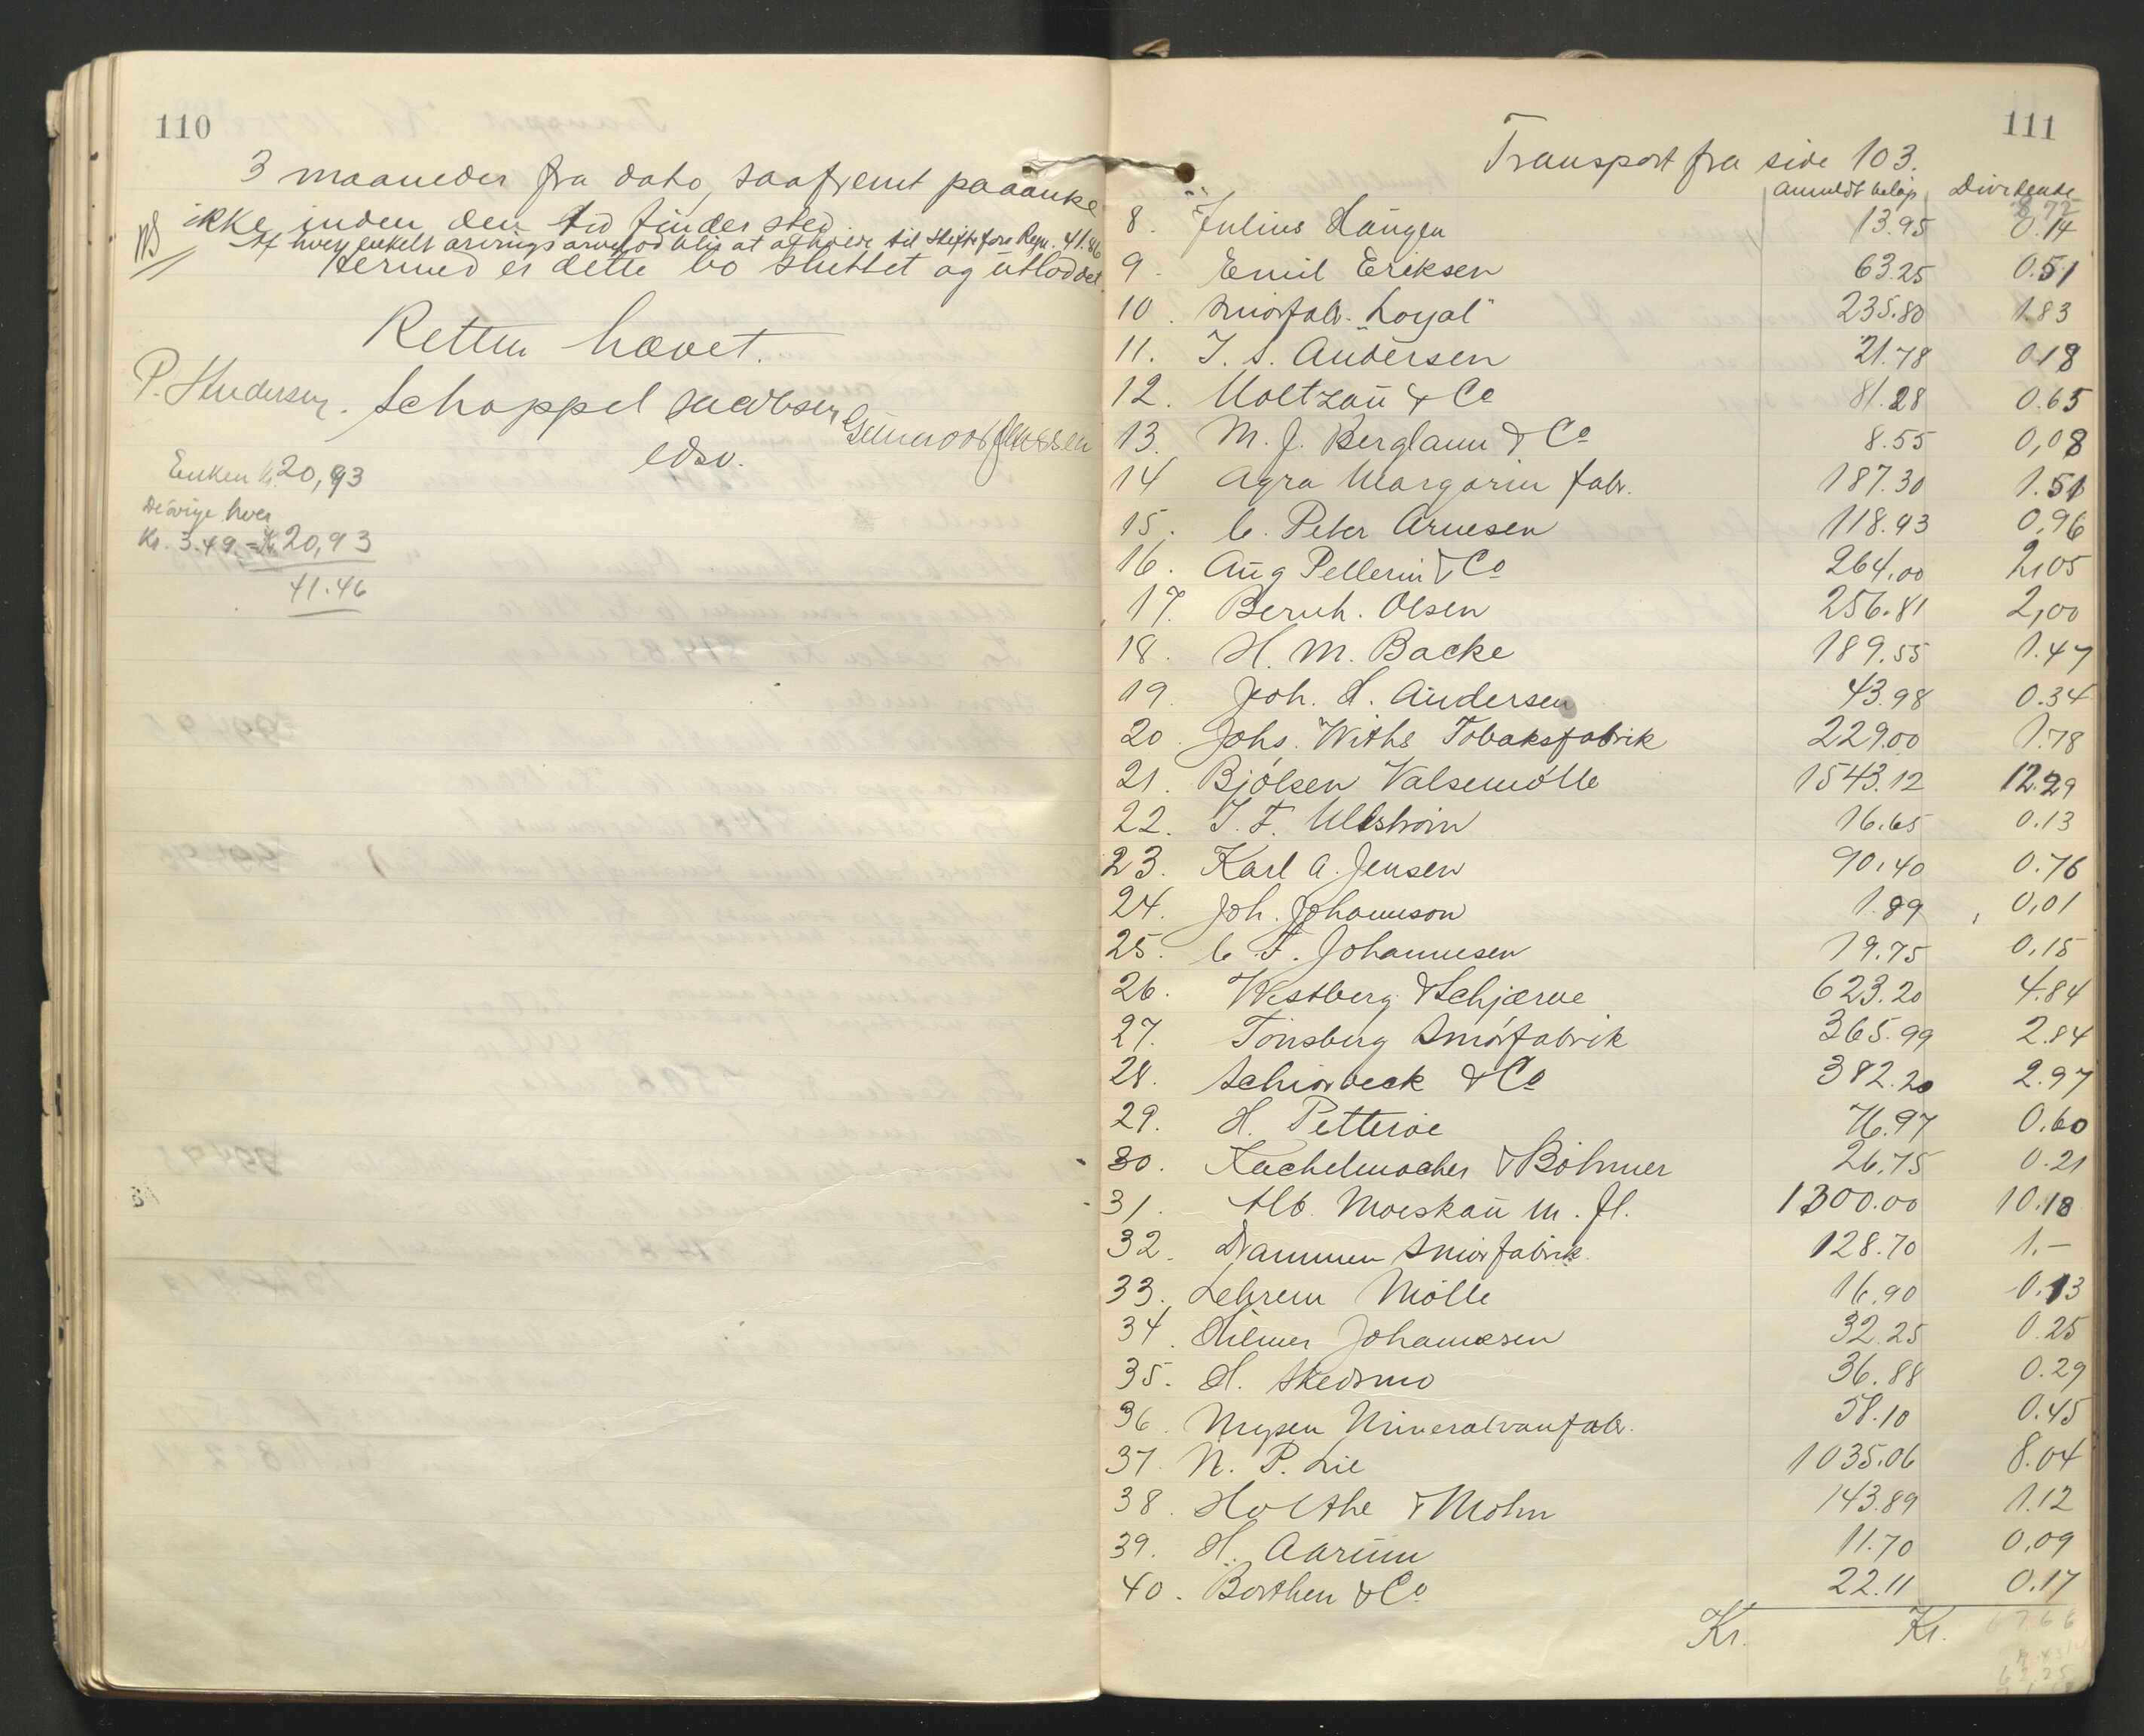 110
3 maaneder fra dato, saafremt paaanke
ikke inden den tid finder sted.
Af hver enkelt arvings arvelod blir at afholde til Skiftefors Regn. 41.86
NB Hermed er dette bo sluttet og utloddet.
Retten hævet.
P. Andersen. Schappel Jacobsen Gunerood Jenssen
edsv.
Enken kr. 20,93
De övrige hver
Kr. 3.49 = Kr 20,93
41.46
111
Transport fra side 103.
anmeldt beløp Dividende
8. Julius Haugen 13.95 0.14
9. Emil Eriksen 63.25 0.51
10. Smörfabr. "Loyal" 235.80 1.83
11. J. S. Andersen 21.78 0.18
12. Moltzau & Co 81.28 0.65
13. M. J. Berglann & Co 8.55 0,08
14 Agra Margarin fabr. 187.30 1.51
15. C. Peter Arnesen 118.93 0,96
16. Aug Pellerin & Co 264.00 2,05
17. Bernh. Olsen 256.81 2,00
18. H. M. Backe 189.55 1.47
19. Joh. H. Andersen 43.98 0.34
20. Johs. Withs Tobaksfabrik 229.00 1.78
21. Bjölsen Valsemölle 1543.12 12.29
22. J. F. Ullström 16.65 0.13
23. Karl A. Jensen 90.40 0.76
24. Joh. Johannson 1.89 0,01
25. C. F. Johannesen 19.75 0.15
26. Westberg & Schjærve 623.20 4.84
27. Tönsberg Smörfabrik 365.99 2.84
28. Schiörbeck & Co 382.20 2.97
29. H. Petteröe 76.97 0.60
30. Kachelmacher & Böhmer 26.75 0.21
31. Alb. Moeskau m. fl. 1300.00 10.18
32. Drammen Smörfabrik. 128.70 1.—
33. Lehrem Mölle 16.90 0.13
34. Hilmer Johannesen 32.25 0.25
35. H. Skedsmo 36.88 0.29
36. Mysen Mineralvanfabr. 58.10 0.45
37. N. P. Lie 1035.06 8.04
38. Holthe & Mohn 143.89 1.12
39. H. Aarum 11.70 0,09
40. Borthen & Co 22.11 0.17
Kr. Kr. 67.66